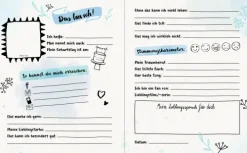 Das bin ich!
Ich heiße:
Man nennt mich auch:
Mein Geburtstag ist am:
So kannst du mich erreichen:
Das mache ich gern:
Meine Lieblingsfarbe:
Das kann ich besonders gut:
Ohne das kann ich nicht leben:
Das finde ich toll:
Das mag ich wirklich nicht:
Stimmungsbarometer:
Mein Traumberuf:
Das liebste Tier:
Der beste Song:
Ich bin ein Fan von:
Lieblingsfilm/-serie:
Mein Lieblingsspruch für dich
Datum: